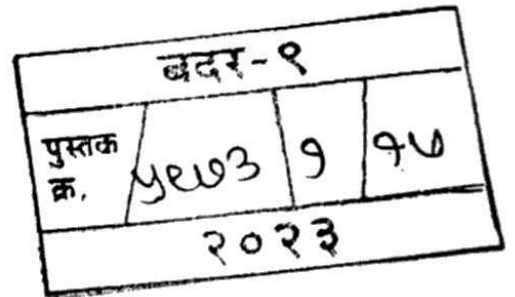 बदर-९
पुस्तक क्र. ५९७३ १ १७
२०२३